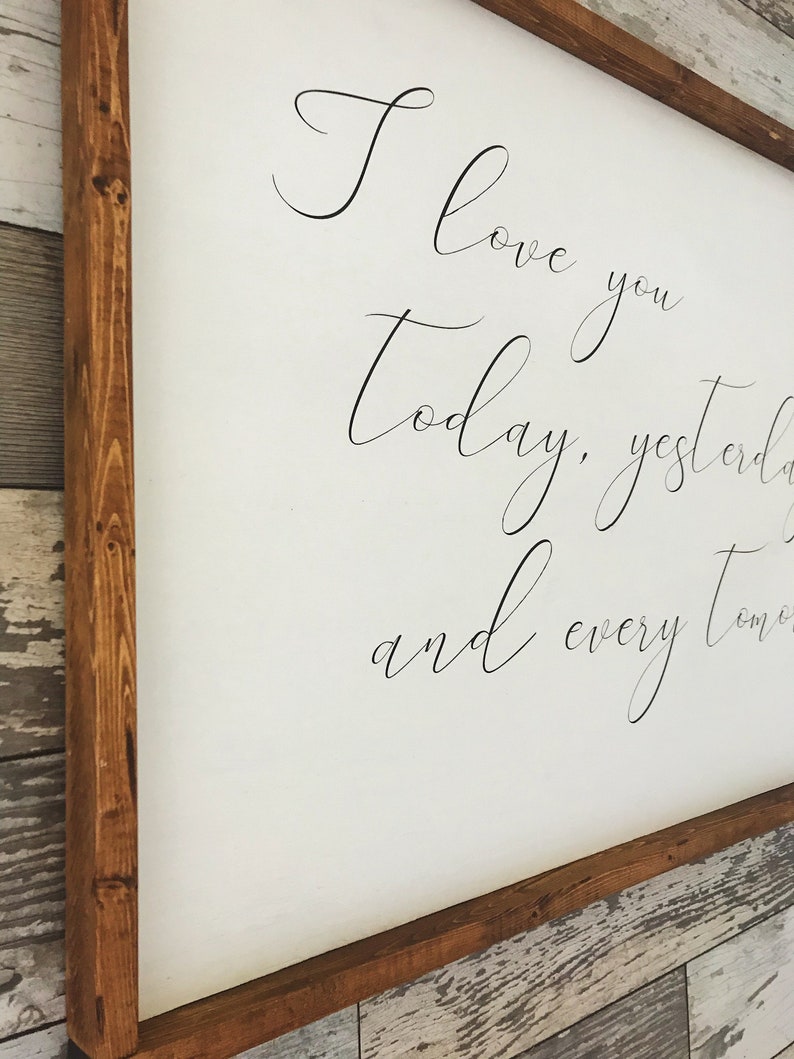 I love you
today, yesterda
and every tomor